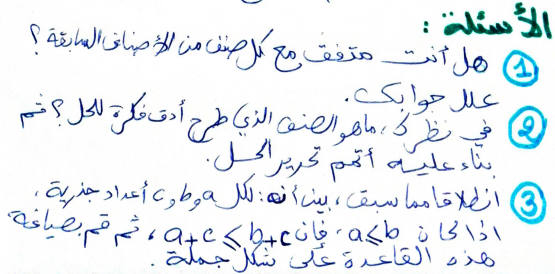 الأسئلة :
① هل أنت متفق مع كل صنف من الأصناف السابقة ؟
علل جوابك .
② في نظرك ، ما هو الصنف الذي طرح أدق فكرة للحل ؟ ثم
بناء عليه أتمم تحرير الحل .
③ انطلاقا مما سبق ، بين أنه : لكل a و b و c أعداد جذرية ،
اذا كان a≤b ، فإن a+c≤b+c ، ثم قم بصياغة
هذه القاعدة على شكل جملة .